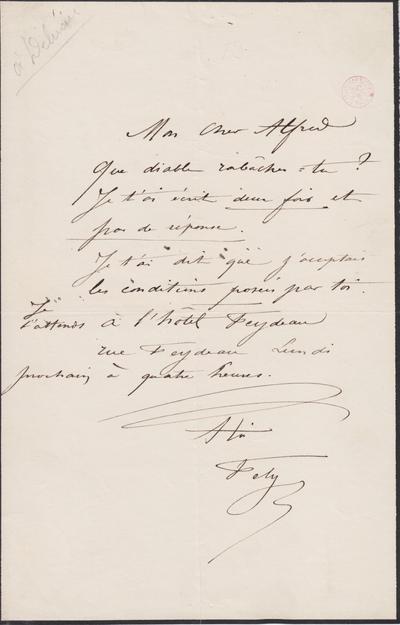 à Delvau
Mon cher Alfred
Que diable rabâches-tu ?
Je t'ai écrit deux fois et
pas de réponse.
Je t'ai dit que j'acceptais
les conditions posées par toi.
Je
t'attends à l'hôtel Feydeau
rue Feydeau Lundi
prochain à quatre heures.
A toi
Fély